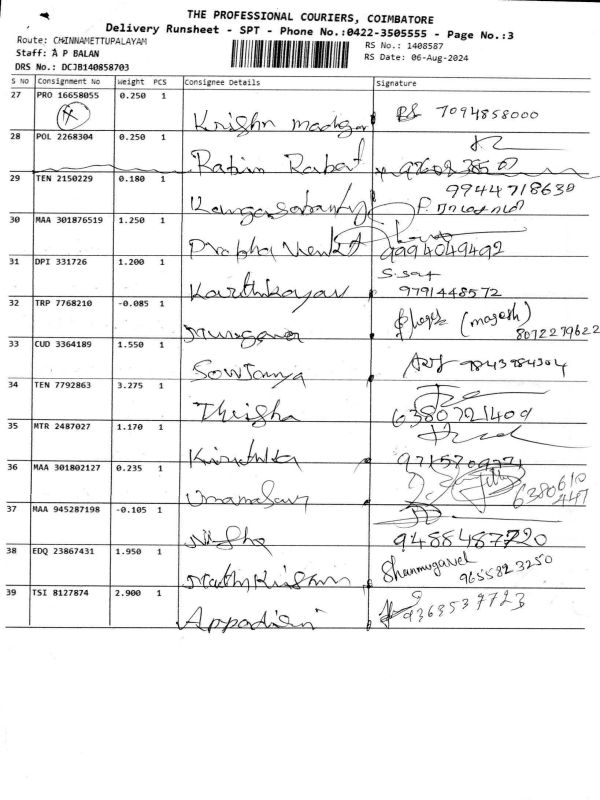 THE PROFESSIONAL COURIERS, COIMBATORE
Delivery Runsheet - SPT - Phone No.:0422-3505555 - Page No.:3
Route: CHINNAMETTUPALAYAM
RS No.: 1408587
Staff: A P BALAN
RS Date: 06-Aug-2024
DRS No.: DCJB140858703
S No Consignment No Weight PCS Consignee Details Signature
27 PRO 16658055 0.250 1
Krishn 7094858000
28 POL 2268304 0.250 1
Rabin Rabat
29 TEN 2150229 0.180 1
9944718630
30 MAA 301876519 1.250 1
Prabha Venkat 9994049492
31 DPI 331726 1.200 1
Karthikayan 9791448572
32 TRP 7768210 -0.085 1
Murugan (magesh)
8072279622
33 CUD 3364189 1.550 1
Sowjanya 9843984304
34 TEN 7792863 3.275 1
Theisha 6380721409
35 MTR 2487027 1.170 1
Kiruthika
36 MAA 301802127 0.235 1
6380610
447
37 MAA 945287198 -0.105 1
Nisha 9488487720
38 EDQ 23867431 1.950 1
Shanmugavel
9655823250
39 TSI 8127874 2.900 1